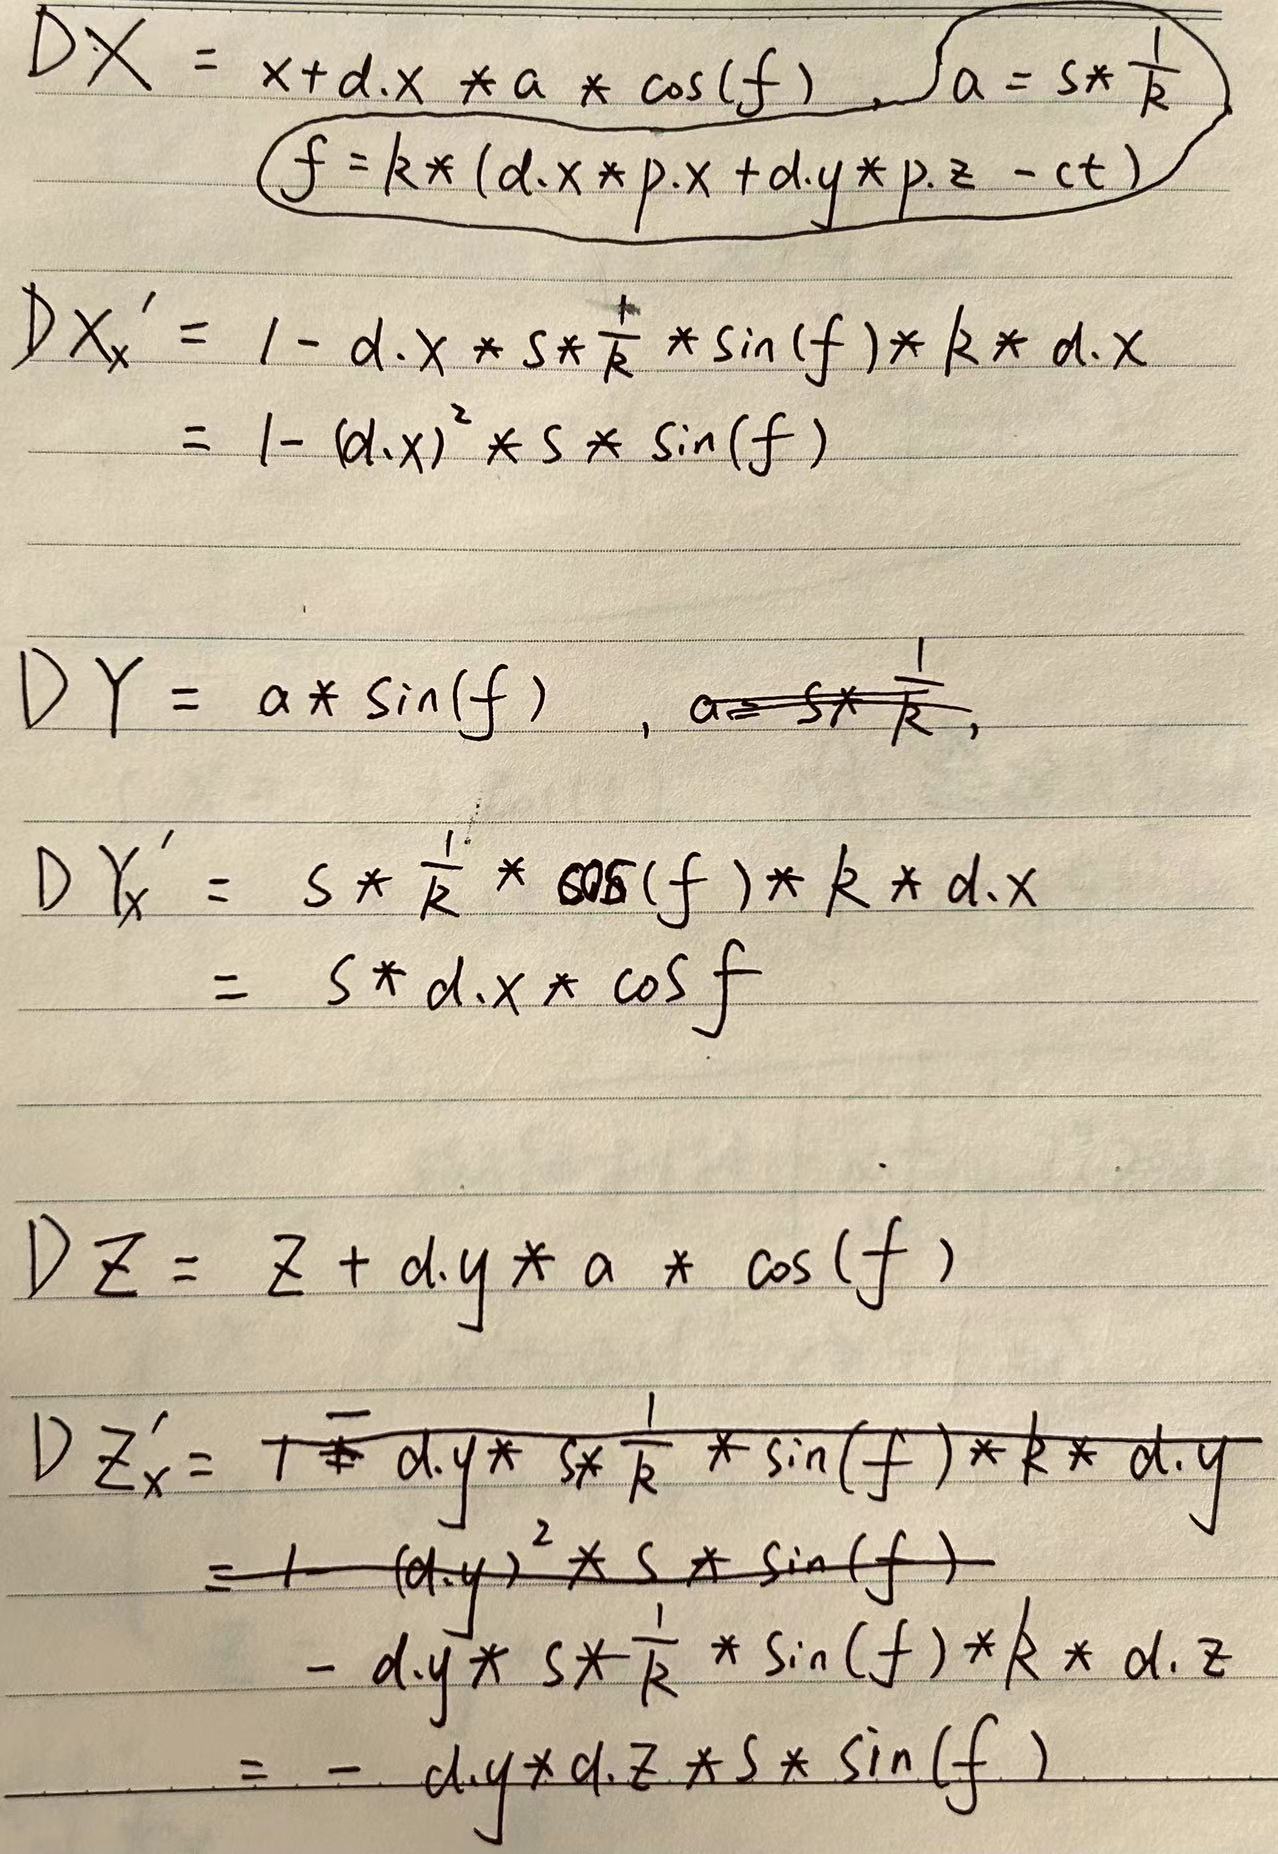 DX = x+d.x * a * cos(f) , a = s* 1/k
f = k*(d.x*p.x+d.y*p.z -ct)
DXx' = 1- d.x * s* 1/k * sin(f)* k* d.x
= 1- (d.x)² * s * sin(f)
DY = a* sin(f) , a= s* 1/k,
DYx' = s * 1/k * cos(f)* k * d.x
= s* d.x* cos f
DZ = z + d.y * a * cos(f)
DZx' = 1 - d.y* s* 1/k * sin(f)* k* d.y
= 1- (d.y)² * s * sin(f)
- d.y* s* 1/k * sin(f)*k* d.z
= - d.y*d.z *s* sin(f)